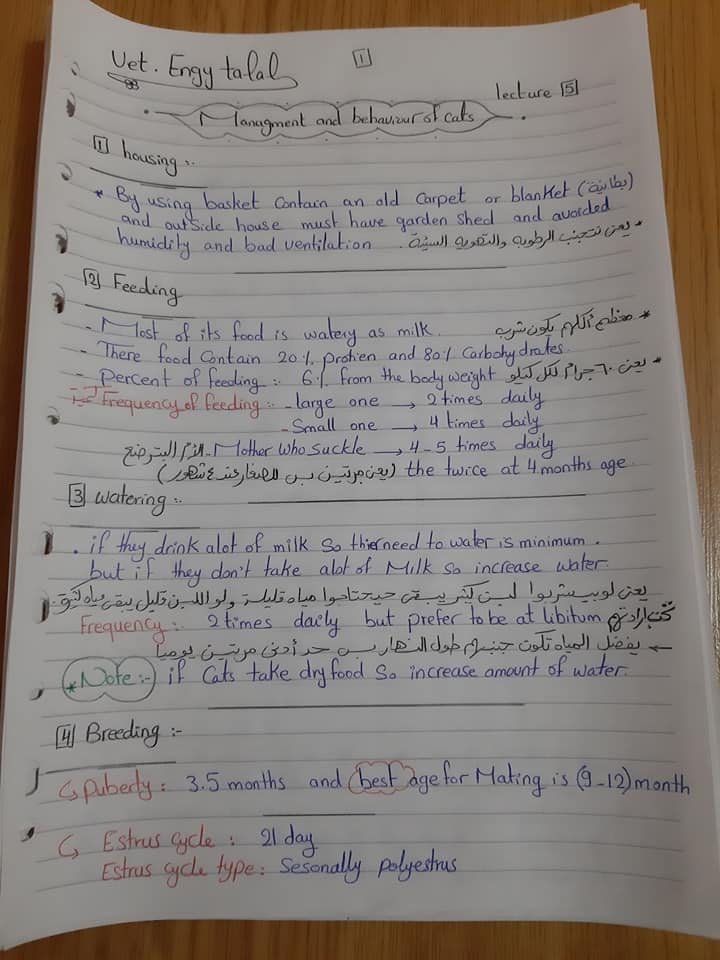 Vet. Engy talal
1
lecture 5
Managment and behaviour of cats
1 housing :.
* By using basket contain an old carpet or blanket (بطانية)
and outside house must have garden shed and avoided
humidity and bad ventilation . يعني نتجنب الرطوبه والتهويه السيئة *
2 Feeding
- Most of its food is watery as milk. معظم أكلهم بكون شرب *
- There food contain 20% protien and 80% Carbohydrates.
- percent of feeding :. 6% from the body weight يعني ٦٠ جرام لكل كيلو *
Frequency of feeding :. - large one → 2 times daily
- Small one → 4 times daily
- Mother who suckle → 4-5 times daily الأم البترضع
(يعني مرتين بس للصغار عند ٤ شهور) the twice at 4 months age.
3 watering :.
. if they drink alot of milk so thier need to water is minimum .
but if they don't take alot of Milk so increase water.
يعني لو بيشربوا لبن كتير يبقى حيحتاجوا مياه قليلة ولو اللبن قليل يبقى مياه كتير.
Frequency :. 2 times daily but prefer to be at libitum تحت إرادتهم
← يفضل المياه تكون جنبهم طول النهار بس حد أدنى مرتين يوميا
* Note :- if Cats take dry food So increase amount of water.
4 Breeding :-
↳ puberty : 3.5 months and best age for Mating is (9-12) month
↳ Estrus cycle : 21 day
Estrus cycle type : Sesonally polyestrus